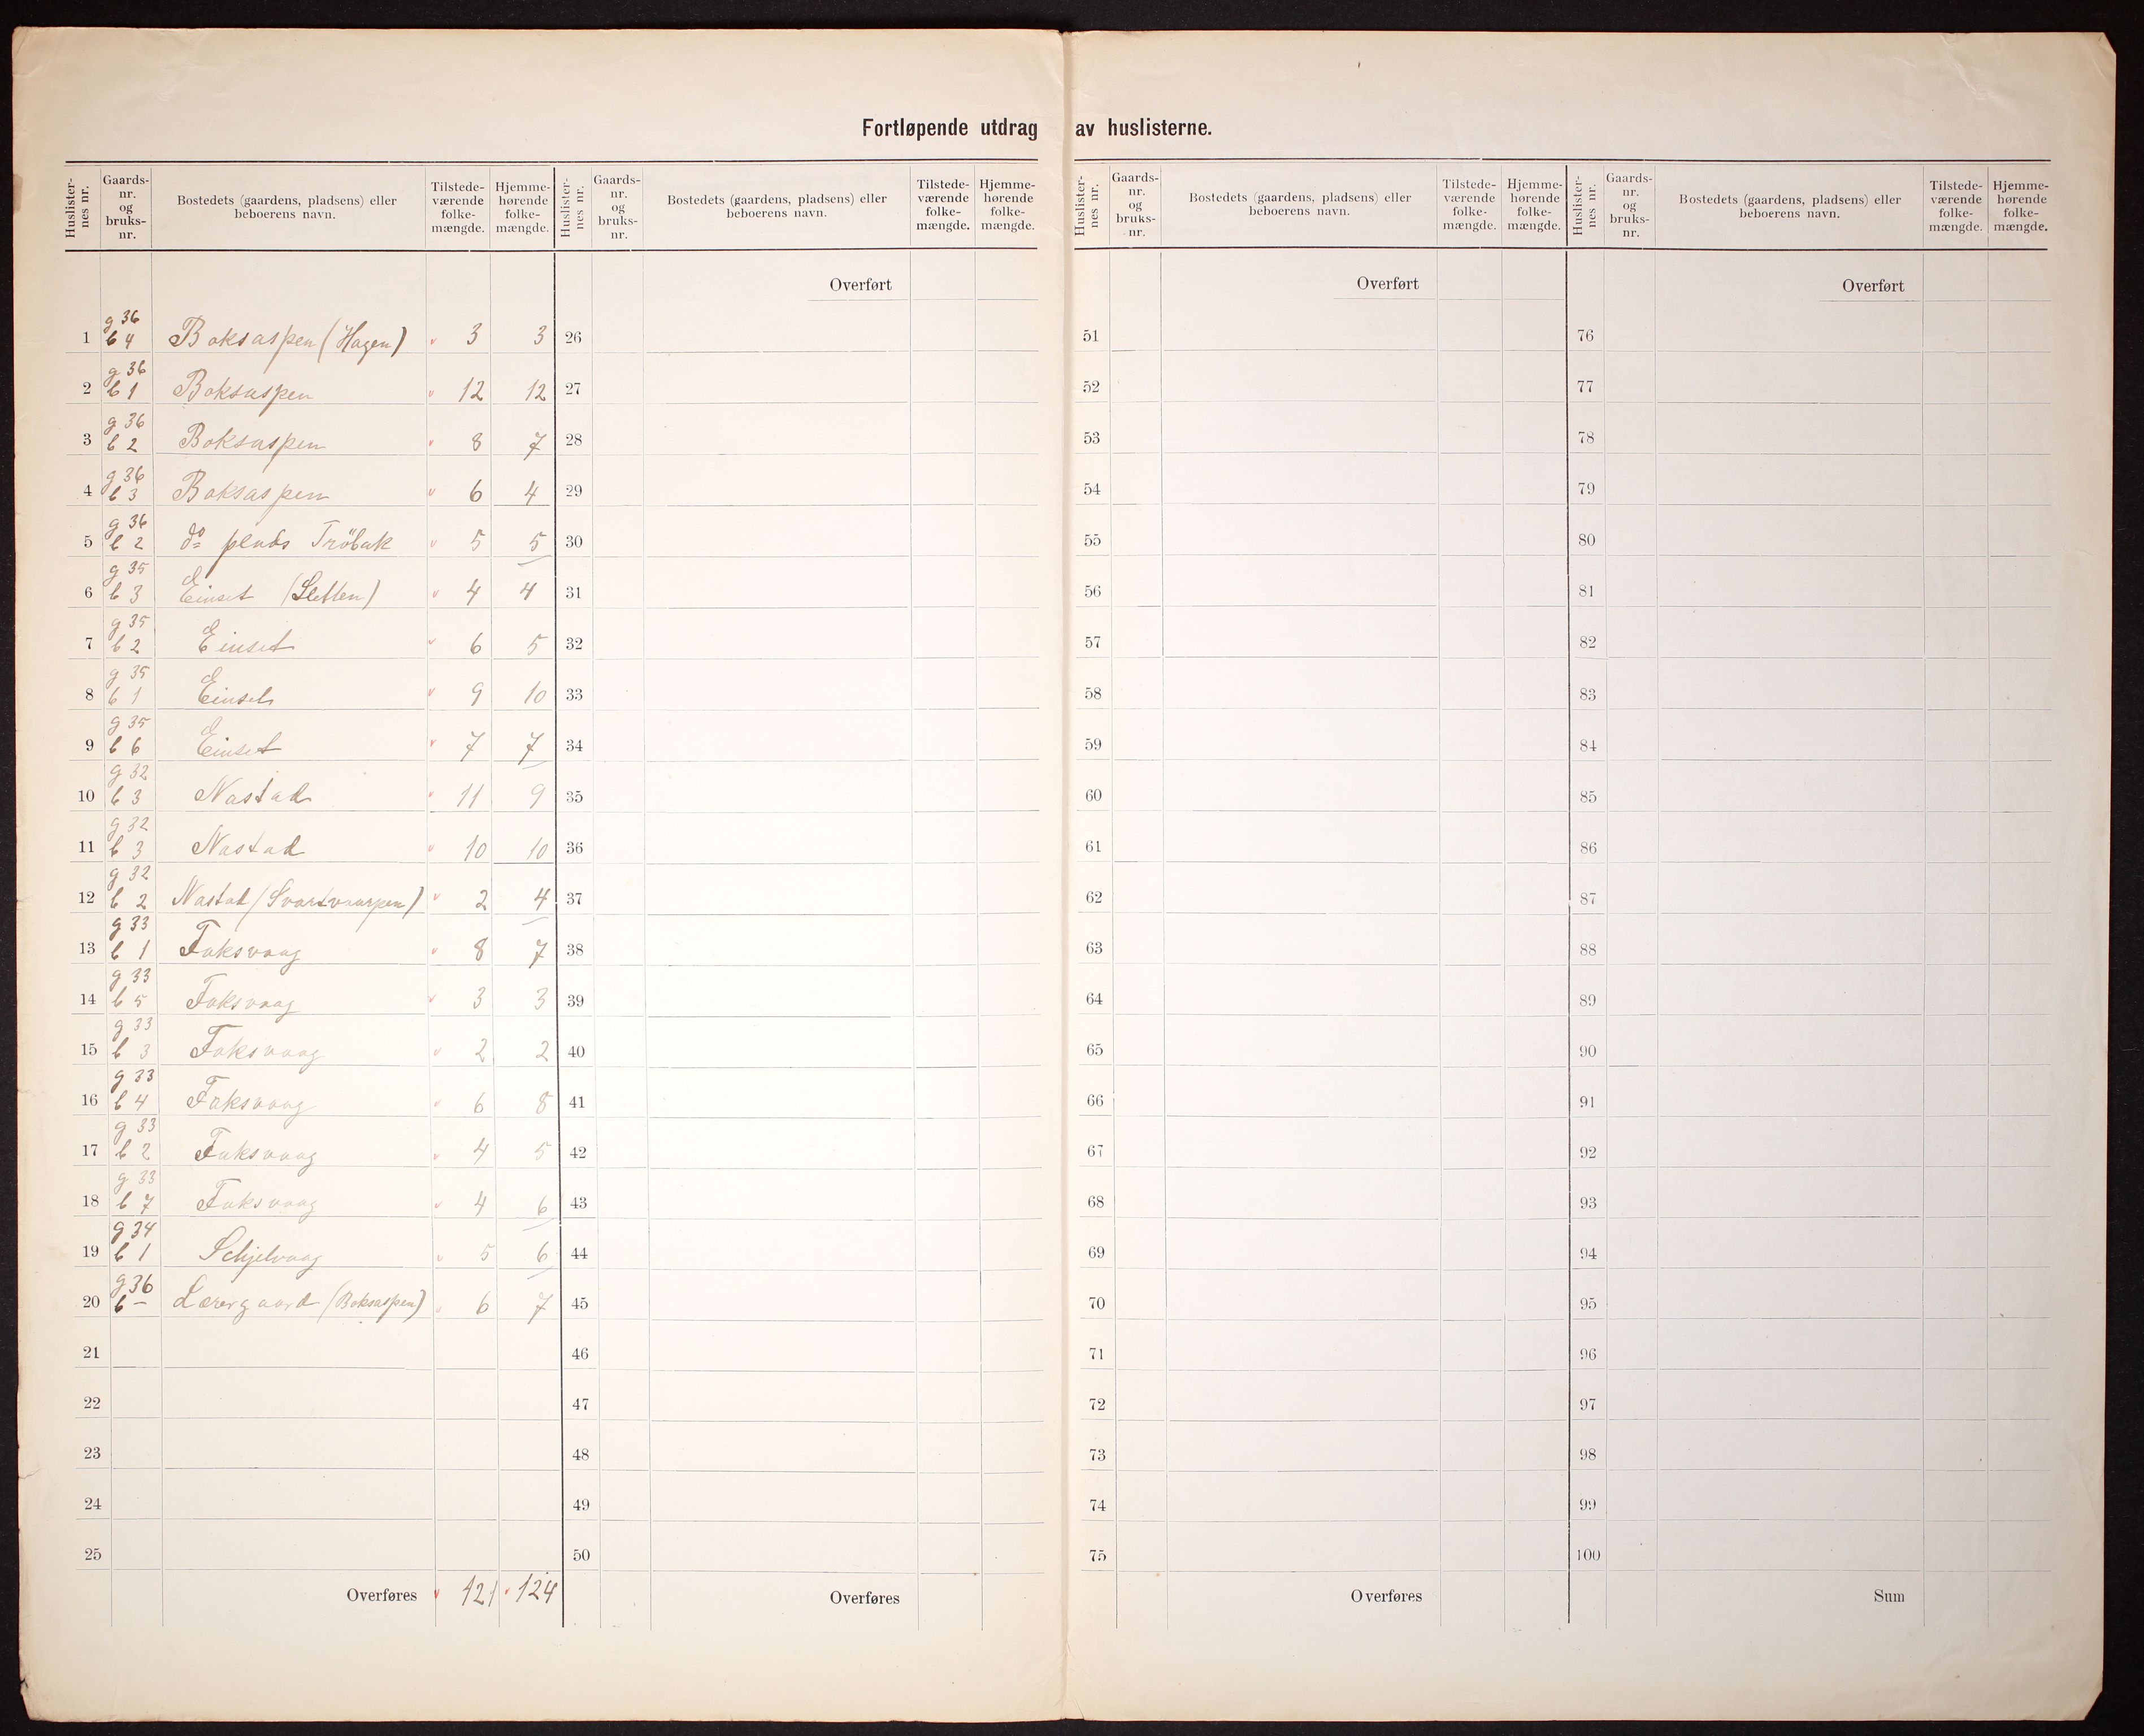 Fortløpende utdrag av huslisterne.
Huslister-nes nr. Gaards-nr. og bruks-nr. Bostedets (gaardens, pladsens) eller beboerens navn. Tilstede-værende folke-mængde. Hjemme-hørende folke-mængde. Huslister-nes nr. Gaards-nr. og bruks-nr. Bostedets (gaardens, pladsens) eller beboerens navn. Tilstede-værende folke-mængde. Hjemme-hørende folke-mængde. Huslister-nes nr. Gaards-nr. og bruks-nr. Bostedets (gaardens, pladsens) eller beboerens navn. Tilstede-værende folke-mængde. Hjemme-hørende folke-mængde. Huslister-nes nr. Gaards-nr. og bruks-nr. Bostedets (gaardens, pladsens) eller beboerens navn. Tilstede-værende folke-mængde. Hjemme-hørende folke-mængde.
Overført Overført Overført
g 36
1 b 4 Boksaspen (Hagen) v 3 3 26 51 76
g 36
2 b 1 Boksaspen v 12 12 27 52 77
g 36
3 b 2 Boksaspen v 8 7 28 53 78
g 36
4 b 3 Boksaspen v 6 4 29 54 79
g 36
5 b 2 do plads Tröbak v 5 5 30 55 80
g 35
6 b 3 Einset (Sletten) v 4 4 31 56 81
g 35
7 b 2 Einset v 6 5 32 57 82
g 35
8 b 1 Einset v 9 10 33 58 83
g 35
9 b 6 Einset v 7 7 34 59 84
g 32
10 b 3 Nastad v 11 9 35 60 85
g 32
11 b 3 Nastad v 10 10 36 61 86
g 32
12 b 2 Nastad v 2 4 37 62 87
g 33
13 b 1 Foksvaag v 8 7 38 63 88
g 33
14 b 5 Foksvaag v 3 3 39 64 89
g 33
15 b 3 Foksvaag v 2 2 40 65 90
g 33
16 b 4 Foksvaag v 6 8 41 66 91
g 33
17 b 2 Foksvaag v 4 5 42 67 92
g 33
18 b 7 Foksvaag v 4 6 43 68 93
g 34
19 b 1 Schjelvaag v 5 6 44 69 94
g 36
20 b — Lærergaard (Boksaspen) v 6 7 45 70 95
21 46 71 96
22 47 72 97
23 48 73 98
24 49 74 99
25 50 75 100
Overføres v 121 v 124 Overføres Overføres Sum